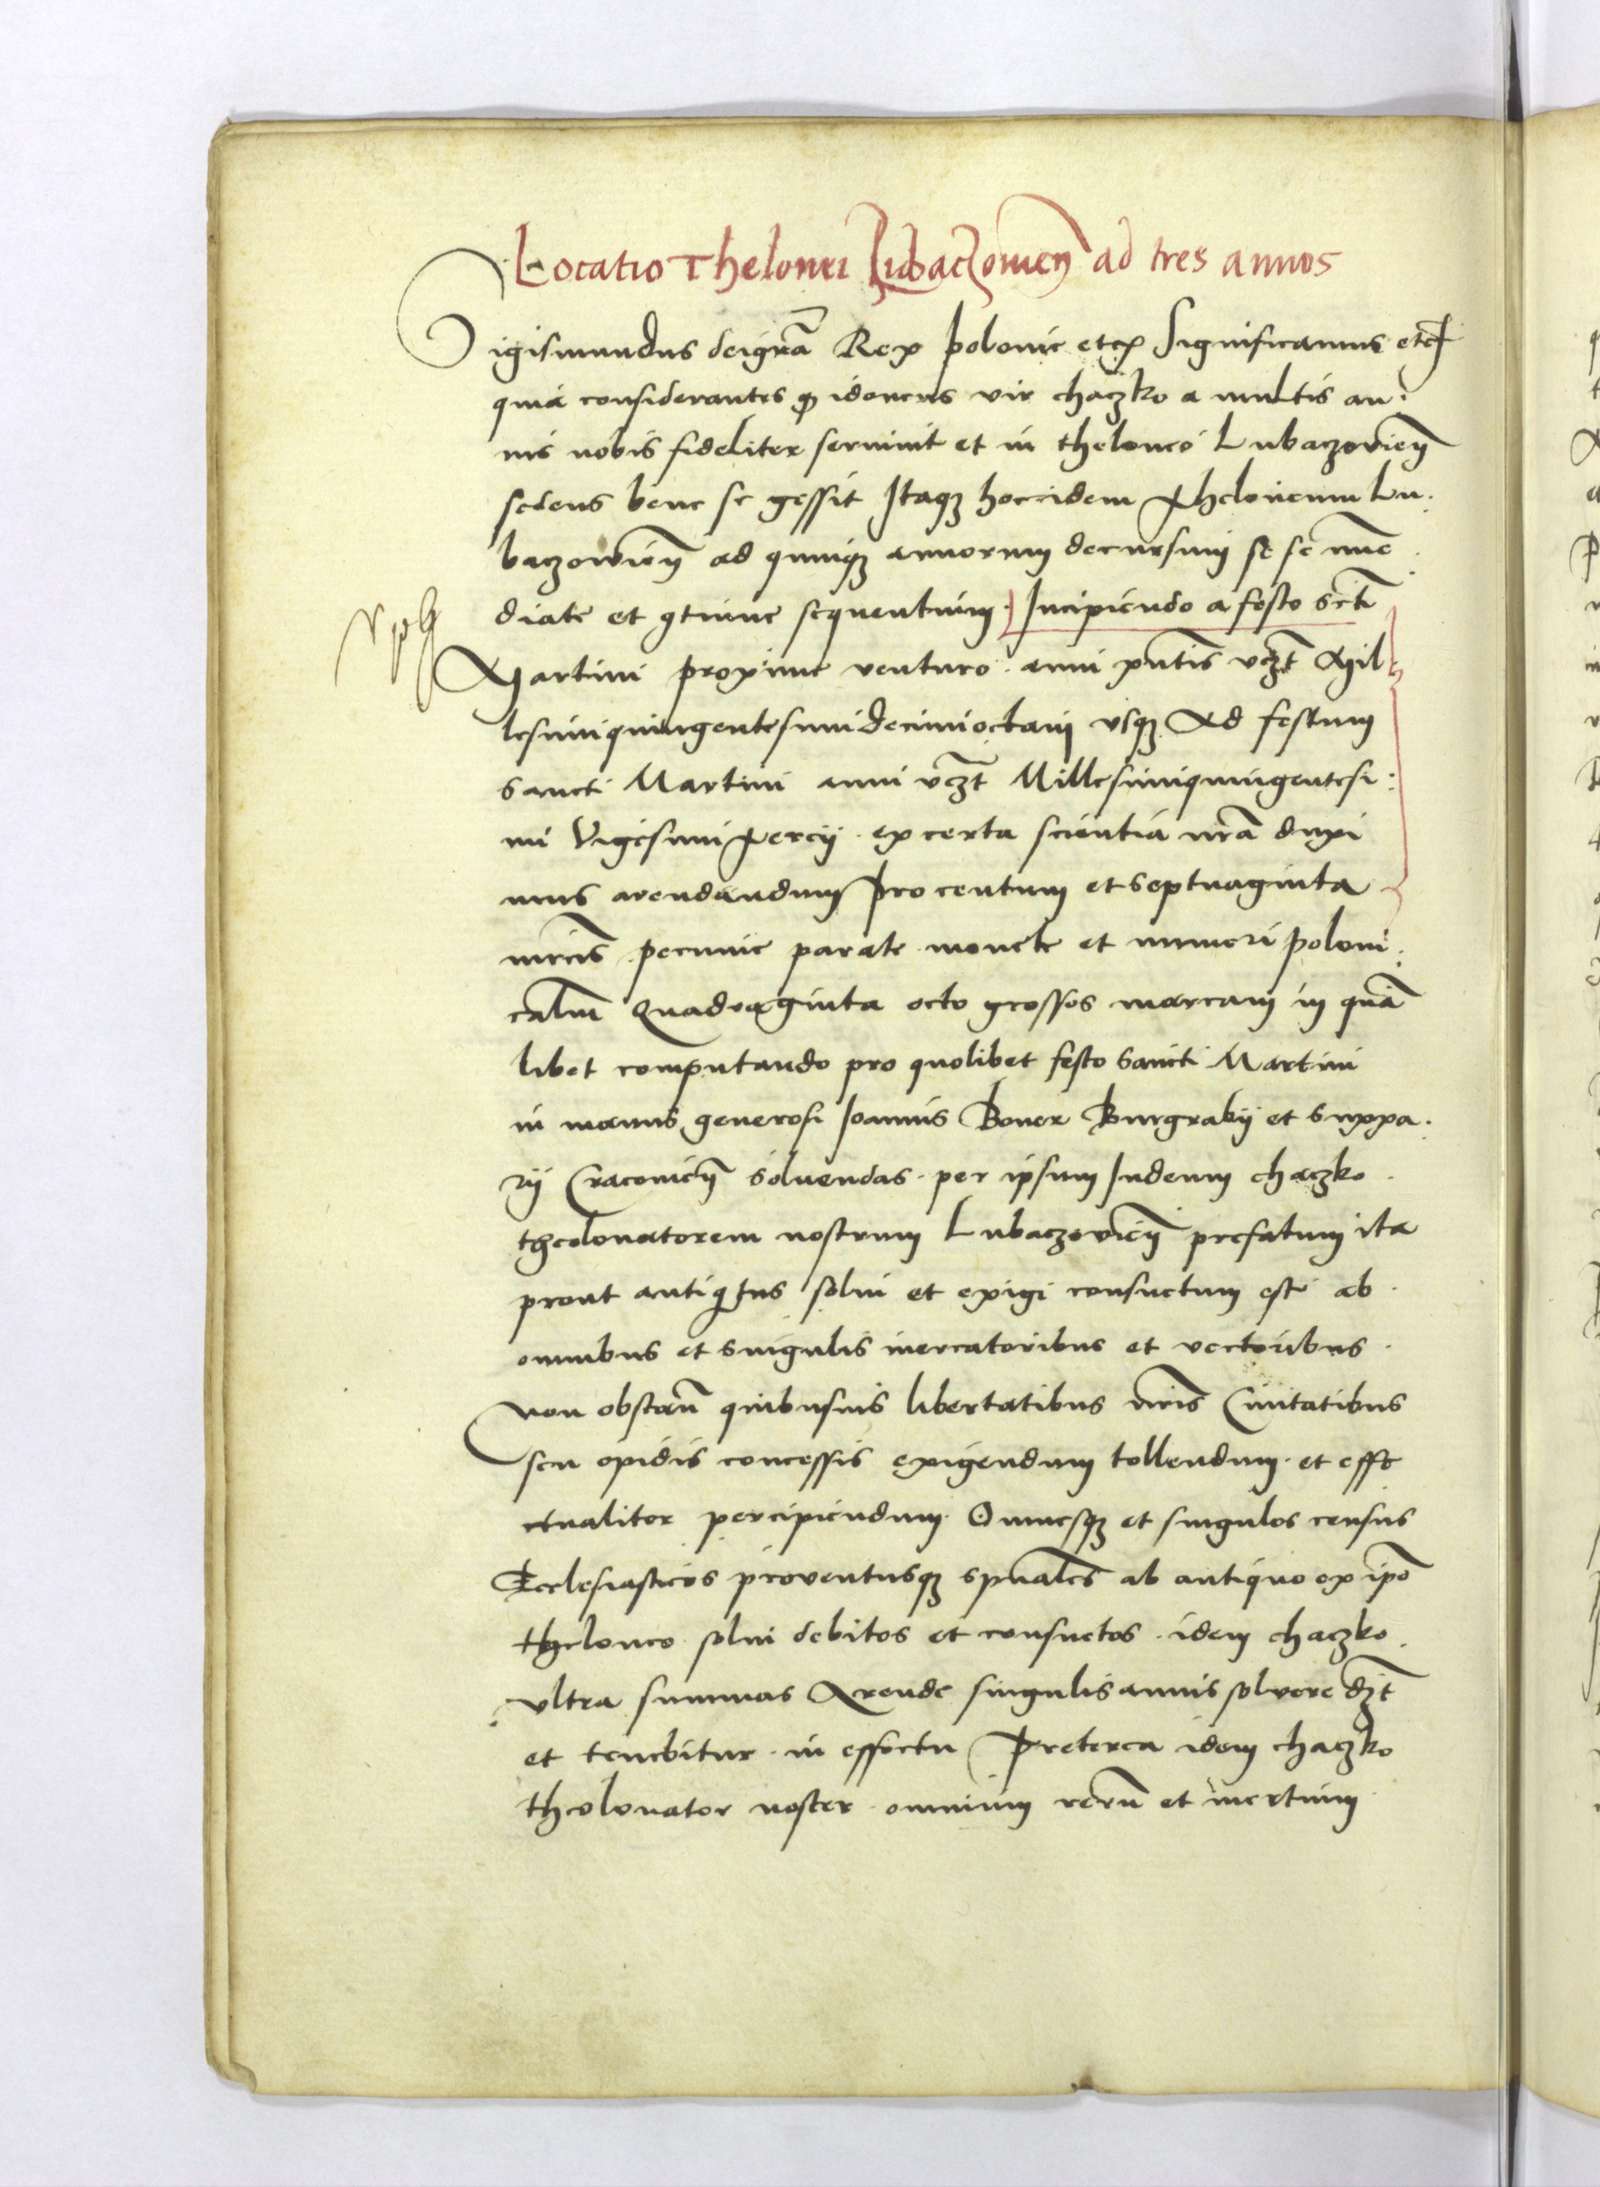 Locatio Thelonei Lubaczowien̄ ad tres annos
Sigismundus dei gra Rex polonie etc Significamus etc
quia considerantes ꝙ idoneus vir chaczko a multis an
nis nobis fideliter seruiuit et in theloneo Lubaczovien̄
sedens bene se gessit Itaqꝫ hoc idem Theloneum Lu
baczowien̄ ad quinqꝫ annorum decursum se se imme
diate et ꝯtinue sequentium Incipiendo a festo scti
Martini proxime venturo anni pntis vꝫt Mil
lesimiquingentesimi decimioctaui vsqꝫ Ad festum
sancti Martini anni vꝫt Millesimiquingentesi
mi Vigesimi Tercij ex certa scientia nra duxi
mus arendandum pro centum et septuaginta
mrcis pecunie parate monete et numeri poloni
calium Quadraginta octo grossos marcam in quā
libet computando pro quolibet festo sancti Martini
in manus generosi Joannis Boner Burgrabij et suppa
rij Cracouien̄ soluendas per ipsum Judeum chaczko
theolonatorem nostrum Lubaczovien̄ prefatum ita
prout antiqitus solui et exigi consuetum est ab
omnibus et singulis mercatoribus et vectoribus
non obstan̄ quibusuis libertatibus nris Ciuitatibus
seu opidis concessis exigendum tollendum et effe
ctualiter percipiendum Omnesqꝫ et singulos census
Ecclesiasticos prouentusqꝫ spuales ab antiquo ex ipo
theloneo solui debitos et consuetos idem chaczko
vltra summas Arende singulis annis soluere dꝫt
et tenebitur in effectu Preterea idem chaczko
theolonator noster omnium rerū et mertium